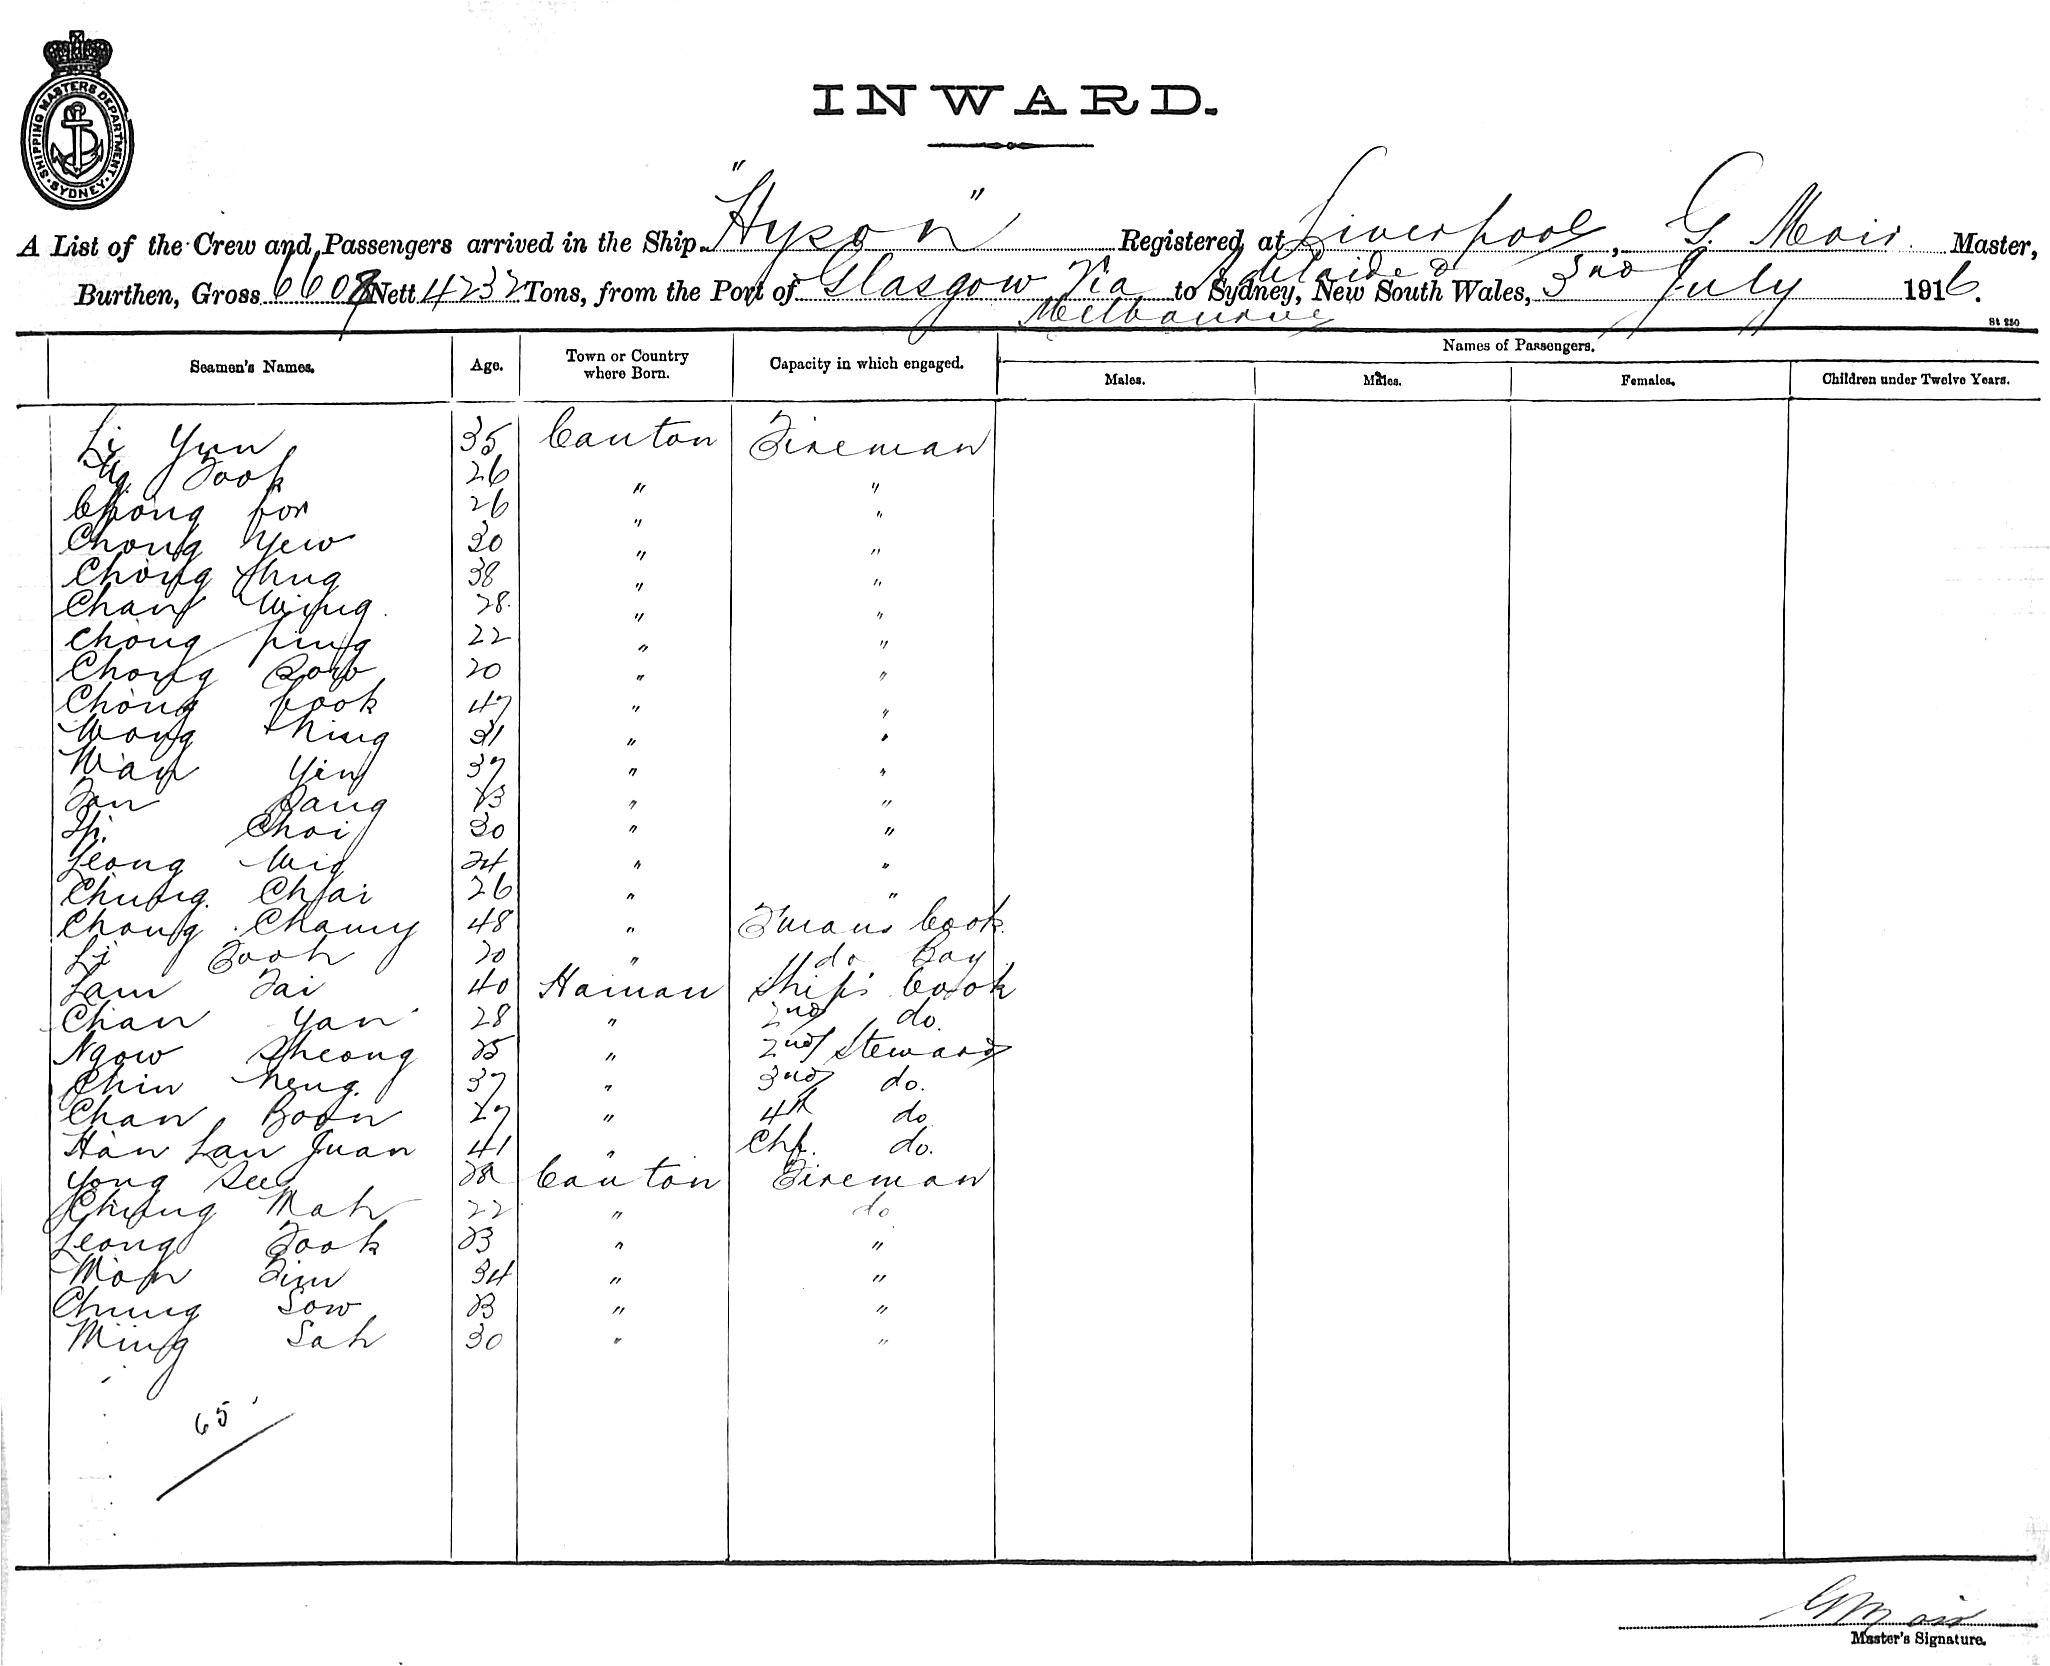 SHIPPING MASTERS DEPARTMENT · SYDNEY ·
INWARD.
A List of the Crew and Passengers arrived in the Ship "Hyson" Registered at Liverpool, G. Moir Master,
Burthen, Gross 6608 Nett 4232 Tons, from the Port of Glasgow Via Adelaide & to Sydney, New South Wales, 3rd July 1916.
Melbourne
St 250
Seamen's Names. Age. Town or Country where Born. Capacity in which engaged. Names of Passengers.
Males. Males. Females. Children under Twelve Years.
Li Yun 35 Canton Fireman
Ng Fook 26 " "
Chong for 26 " "
Chong Yew 30 " "
Chong 38 " "
Chan Wing 28 " "
Chong ping 22 " "
Chong Sow 20 " "
Chong book 47 " "
Wong Ming 31 " "
Wan Yin 37 " "
Fan Sang 23 " "
Choi 30 " "
Leong Wig 24 " "
Chung Chai 26 " "
Chong Chamy 48 " Fmans Cook
Li Fook 20 " do Boy
Lam Tai 40 Hainan Ship's Cook
Chan Yan 28 " 2nd do.
Ngow Sheong 25 " 2nd Steward
Chin heng 37 " 3rd do.
Chan Boon 27 " 4th do
Han Lan Juan 41 " Chf. do.
Yong See 28 Canton Fireman
Chung Mah 22 " do
Leong Fook 23 " "
Mon Tim 34 " "
Chung Sow 23 " "
Ming Sah 30 " "
65
G Moir
Master's Signature.